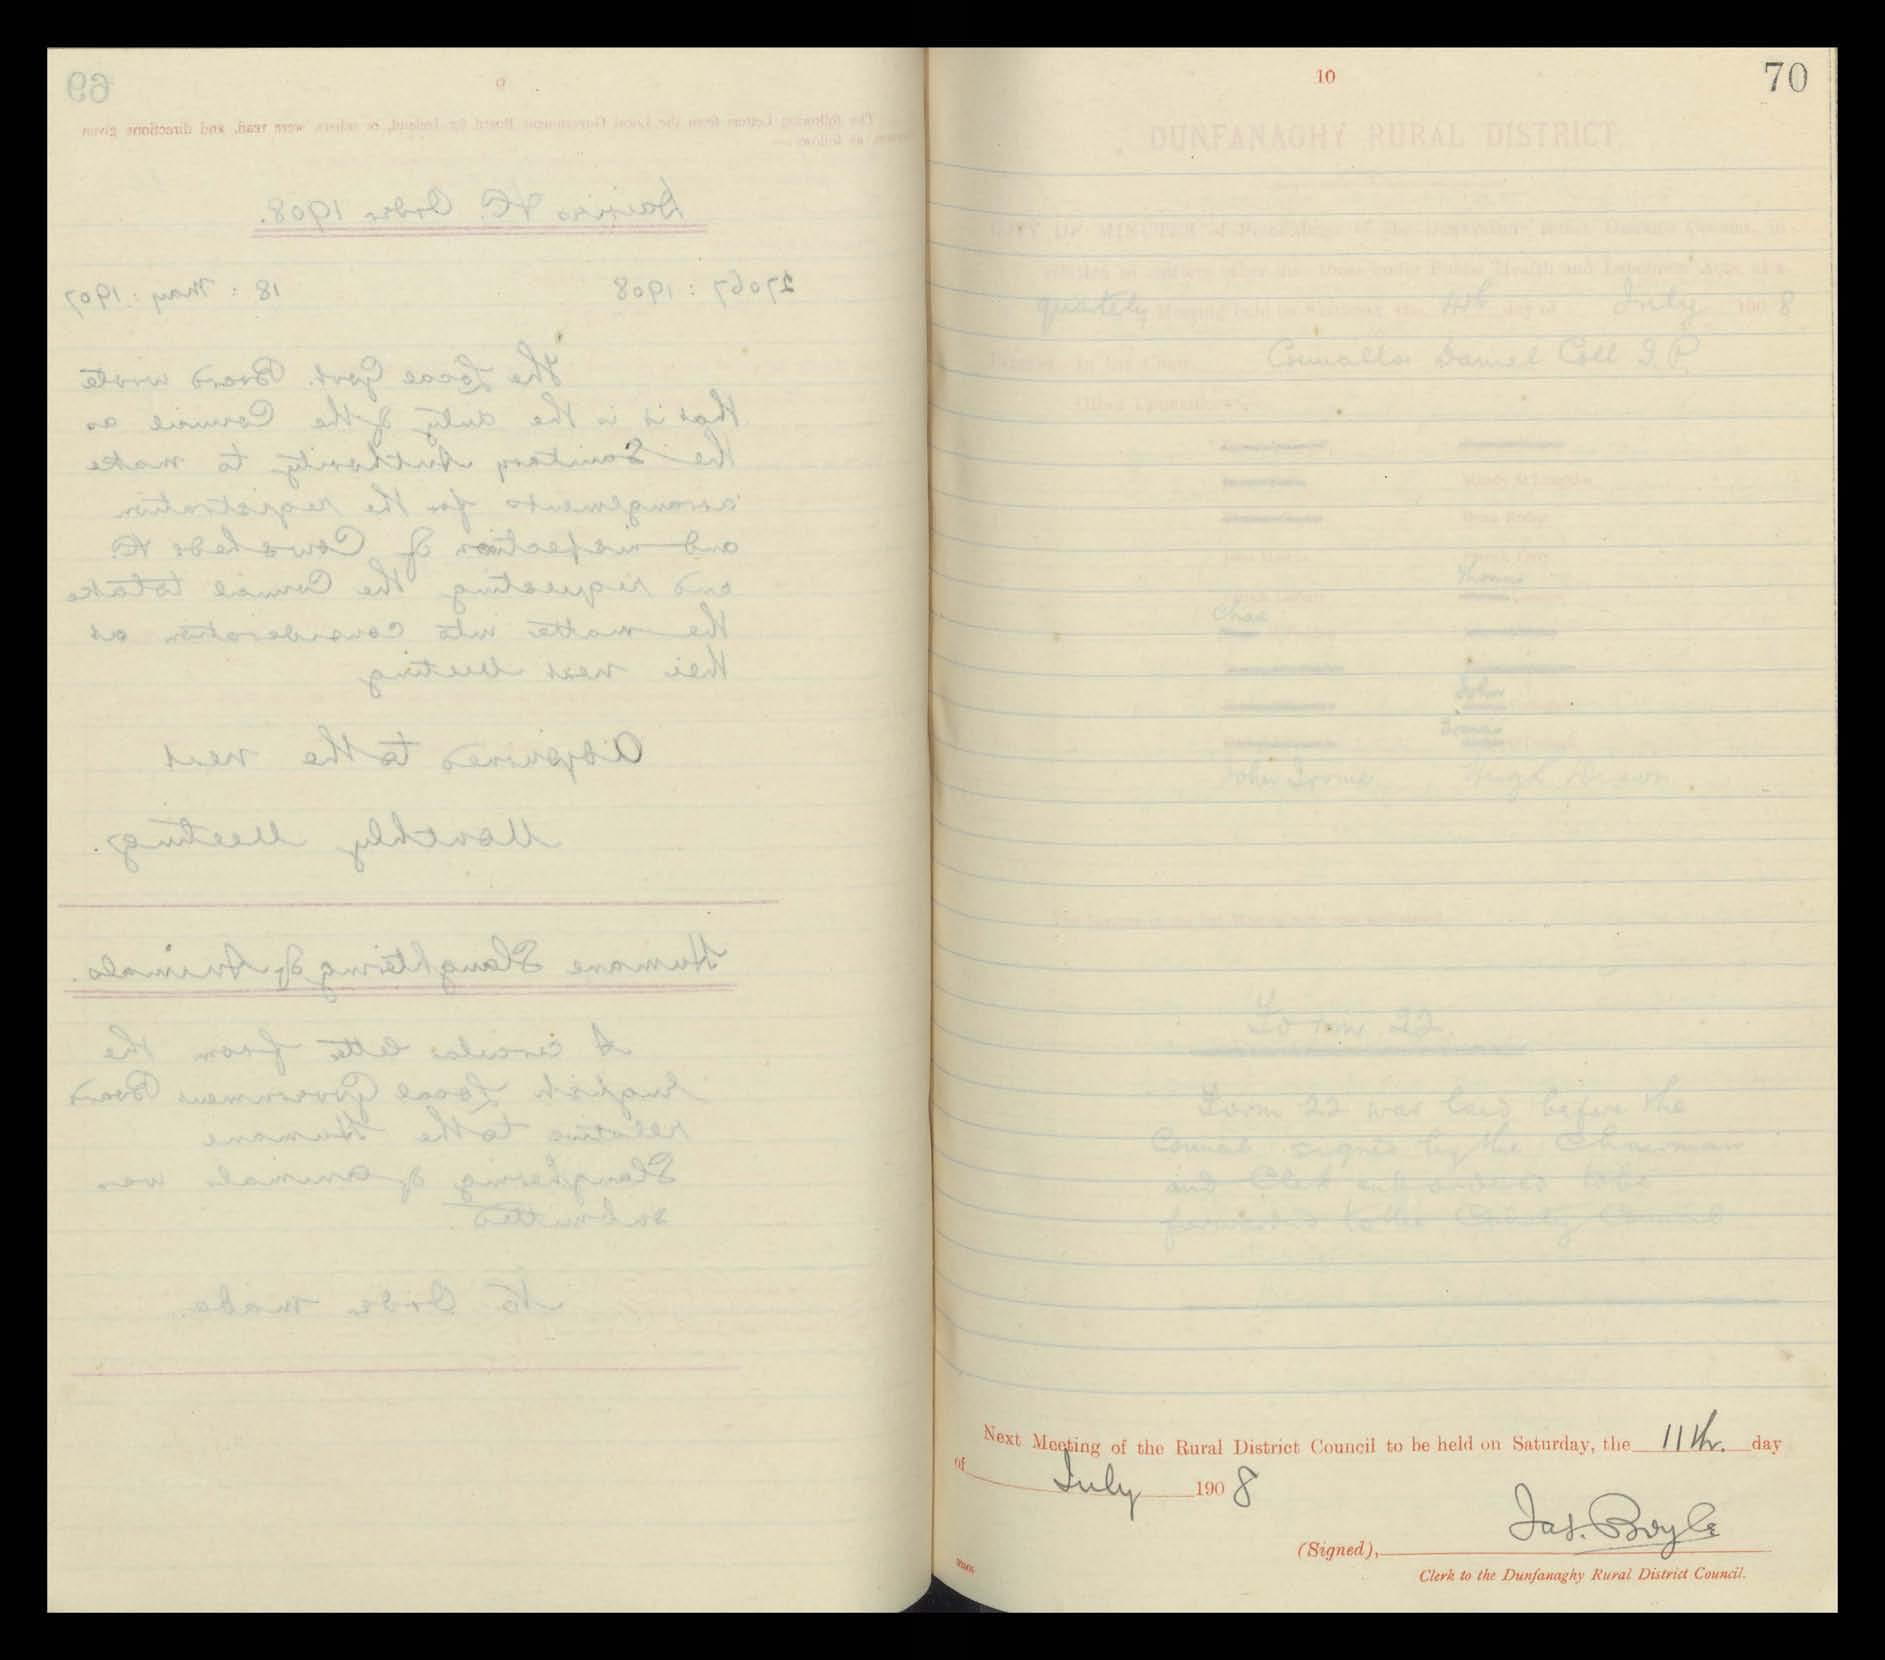 69
9
The following Letters from the Local Government Board for Ireland, or others, were read, and directions given
thereon, as follows:—
Dairies &C. Order 1908.
27067 : 1908 18 : May : 1907
The Local Govt. Board wrote
that it is the duty of the Council as
the Sanitary Authority to make
arrangements for the registration
and inspection of Cowsheds &C.
and requesting the Council to take
the matter into consideration at
their next Meeting
Adjourned to the next
Monthly Meeting.
Humane Slaughtering of Animals.
A circular letter from the
English Local Government Board
relative to the Humane
Slaughtering of animals was
submitted.
No Order made.
10
70
DUNFANAGHY RURAL DISTRICT
COPY OF MINUTES of Proceedings of the Dunfanaghy Rural District Council, in
quarterly Meeting held on Saturday, the day of July 1908
Present, in the Chair, Councillor Daniel Coll J.P.
Other Councillors
Thomas
Chas
John
John Irvine Hugh
Form 22.
Form 22 was laid before the
Council signed by the Chairman
and Clerk and ordered to be
forwarded to the County Council
Next Meeting of the Rural District Council to be held on Saturday, the 11th. day
of July 1908
Jas. Boyle
(Signed),
Clerk to the Dunfanaghy Rural District Council.